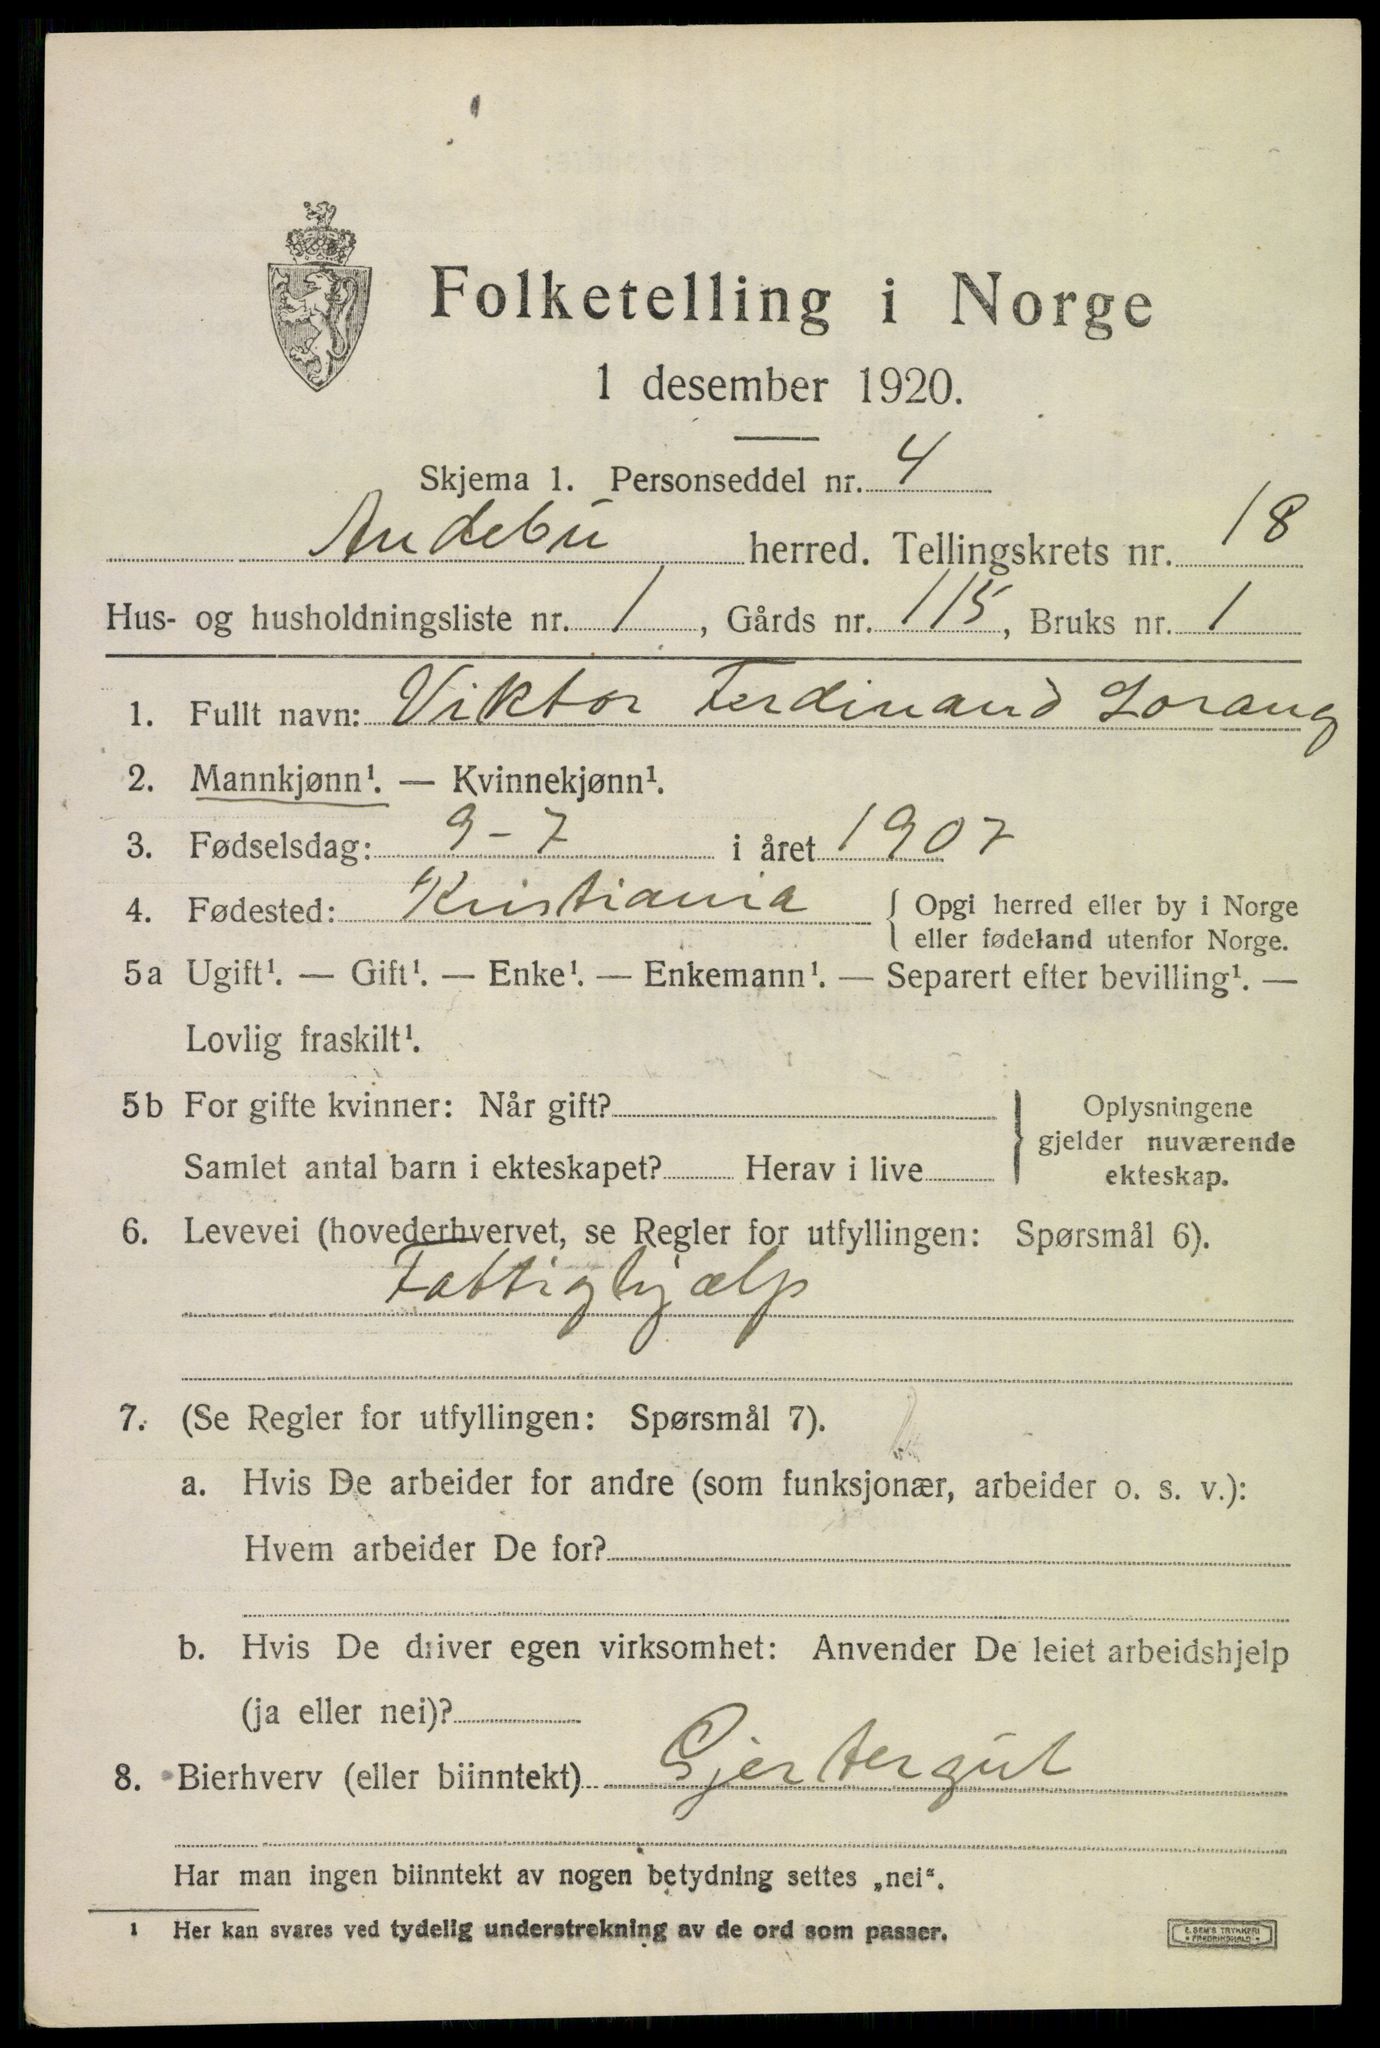 Folketelling i Norge
1 desember 1920.
Skjema 1. Personseddel nr. 4
Andebu herred. Tellingskrets nr. 18
Hus- og husholdningsliste nr. 1, Gårds nr. 115, Bruks nr. 1
1. Fullt navn: Viktor Ferdinand Lorang
2. Mannkjønn¹. — Kvinnekjønn¹.
3. Fødselsdag: 9-7 i året 1907
4. Fødested: Kristiania { Opgi herred eller by i Norge
eller fødeland utenfor Norge.
5a Ugift¹. — Gift¹. — Enke¹. — Enkemann¹. — Separert efter bevilling¹. —
Lovlig fraskilt¹.
5b For gifte kvinner: Når gift? } Oplysningene
gjelder nuværende
Samlet antal barn i ekteskapet? Herav i live
ekteskap.
6. Levevei (hovederhvervet, se Regler for utfyllingen: Spørsmål 6).
Fattighjælp
7. (Se Regler for utfyllingen: Spørsmål 7).
a. Hvis De arbeider for andre (som funksjonær, arbeider o. s. v.):
Hvem arbeider De for?
b. Hvis De driver egen virksomhet: Anvender De leiet arbeidshjelp
(ja eller nei)?
8. Bierhverv (eller biinntekt) Gjetergut
Har man ingen biinntekt av nogen betydning settes „nei“.
¹ Her kan svares ved tydelig understrekning av de ord som passer.
E. SEM'S TRYKKERI
FREDRIKSHALD